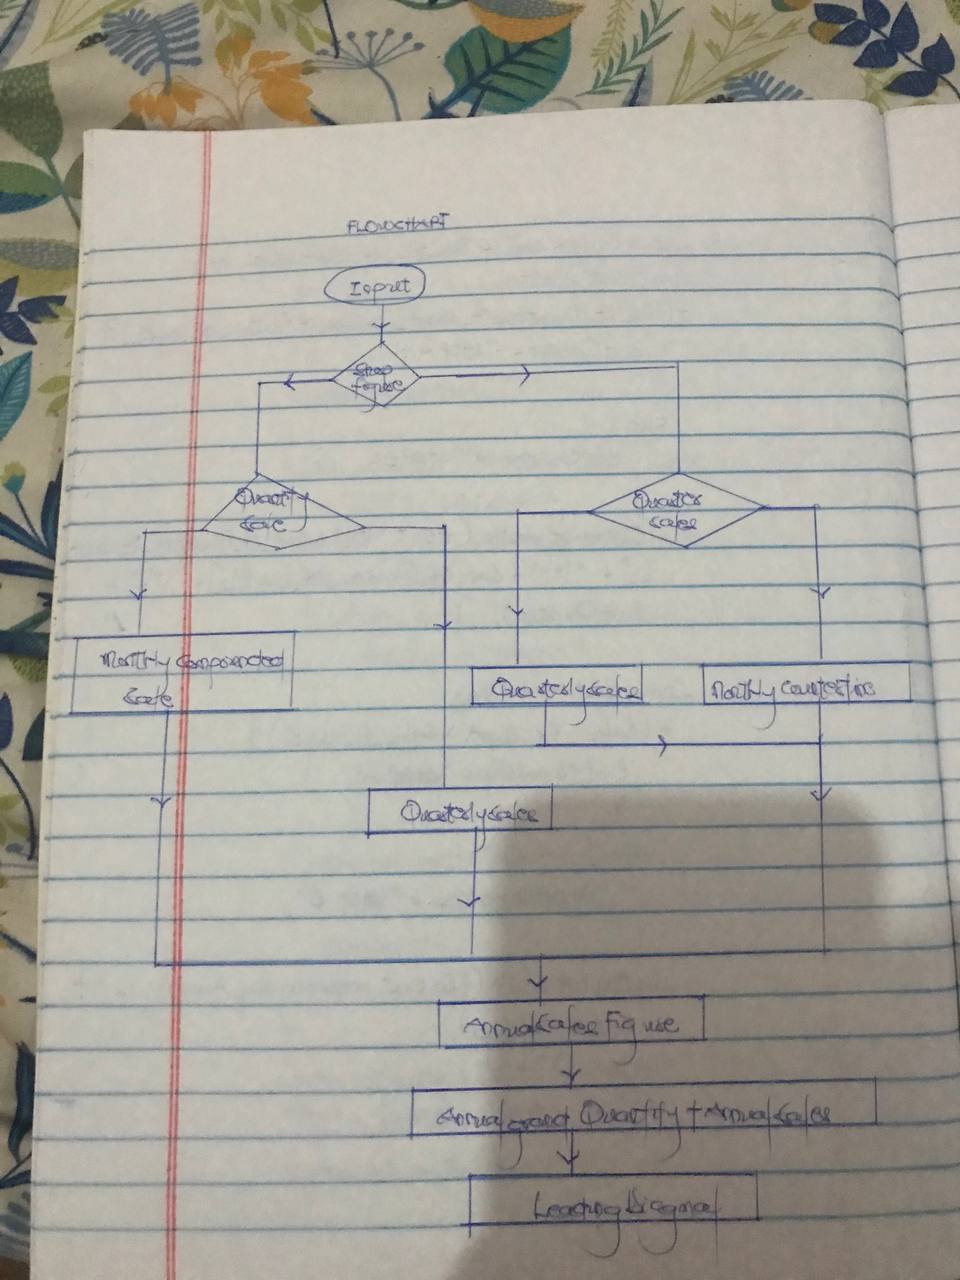 FLOWCHART
Input
Shop
figure
Quantity
sale
Quarter
sales
Monthly compounded
sale
Quarterly sales
Monthly
Quarterly sales
Annual sales Figure
Annual grand Quantity + Annual sales
Leading Diagonal